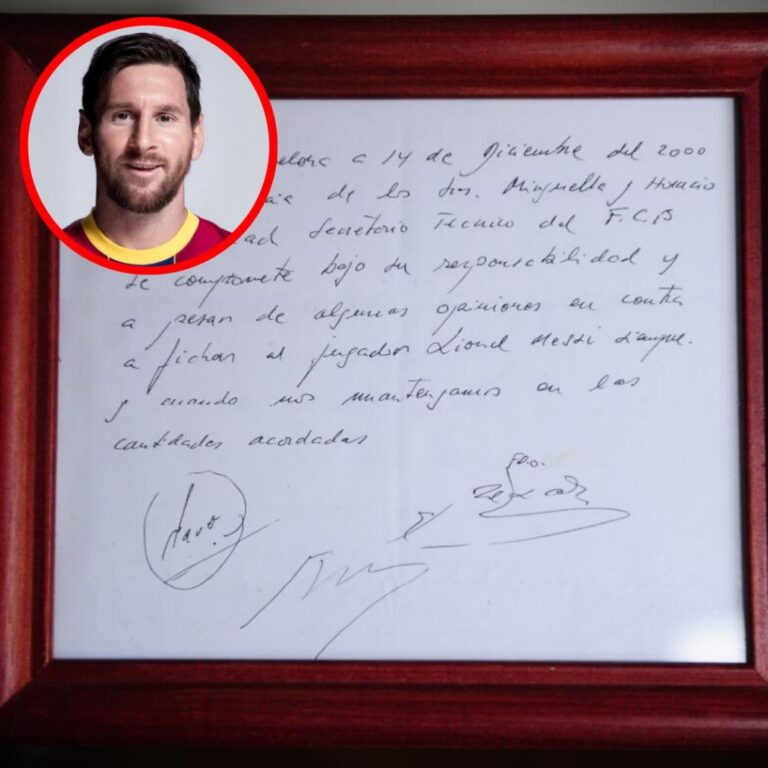 elona a 14 de Diciembre del 2000
cia de los Sres. Minguella y Horacio
ad Secretario Tecnico del F.C.B
se compromete bajo su responsabilidad y
a pesar de algunas opiniones en contra
a fichar al jugador Lionel Messi siempre.
y cuando nos mantengamos en las
cantidades acordadas
Fdo.